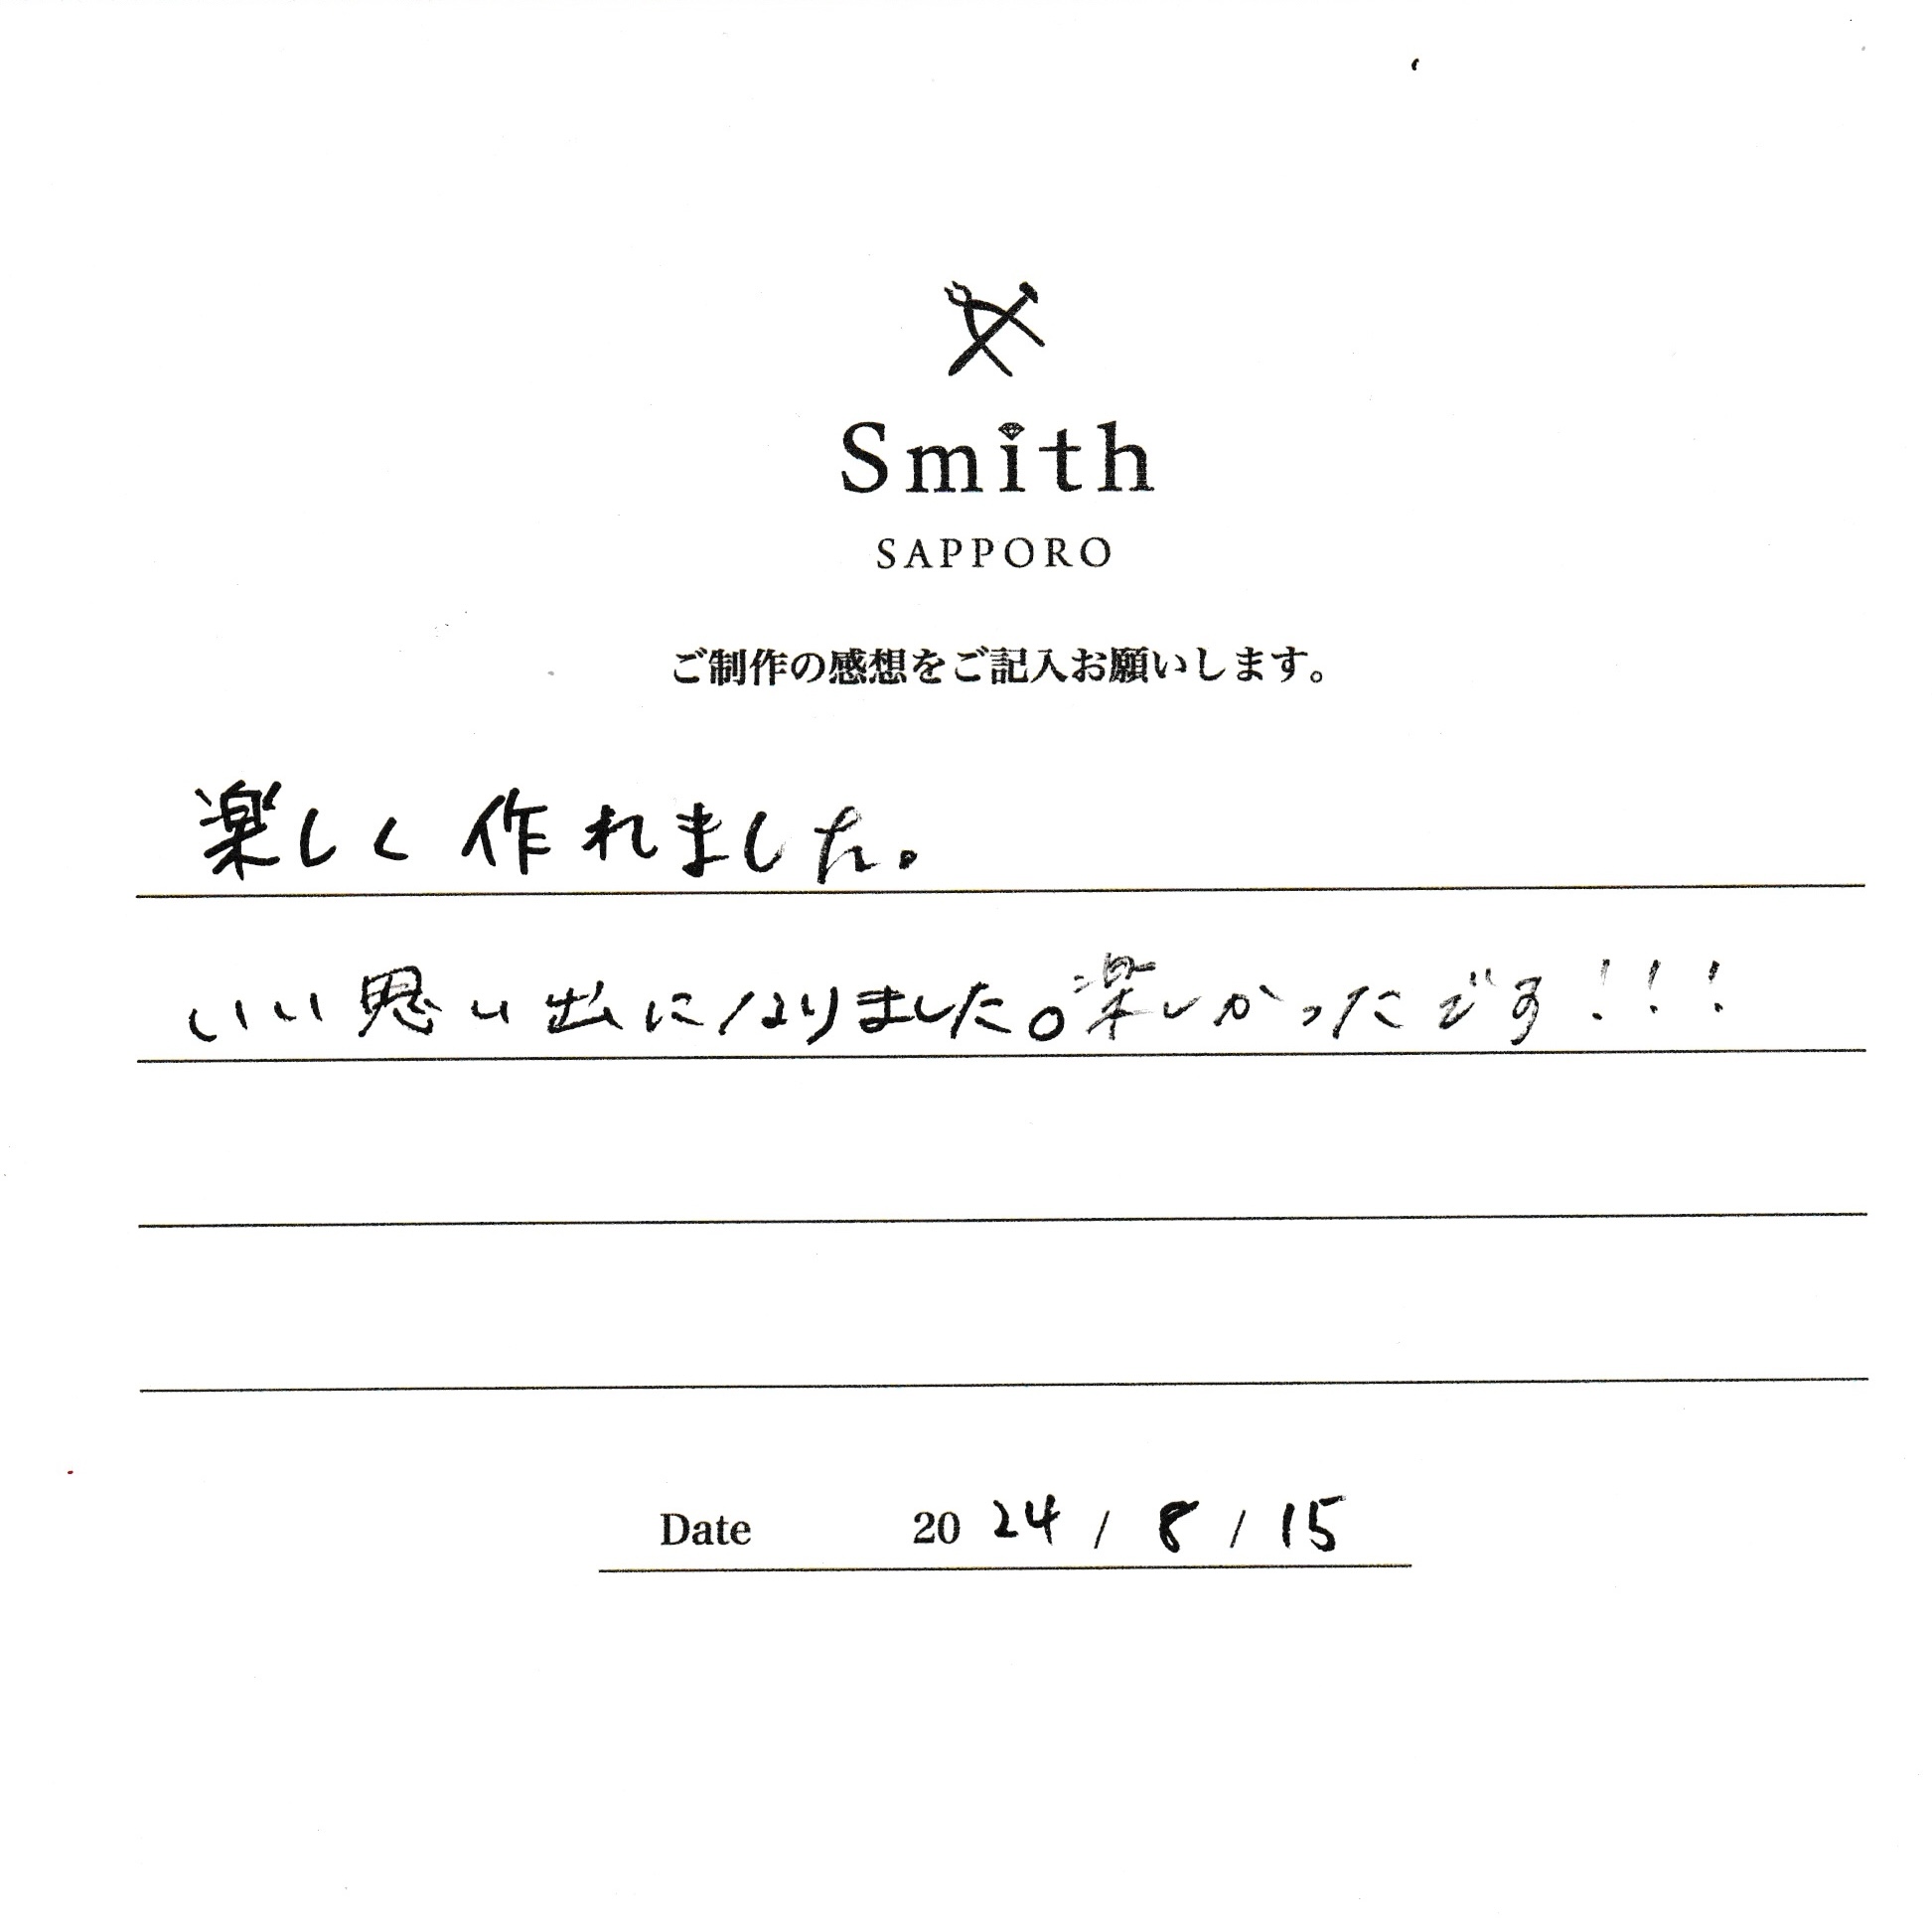 Smith
SAPPORO
ご制作の感想をご記入お願いします。
楽しく作れました。
いい思い出になりました。楽しかったです!!!
Date 2024 / 8 / 15